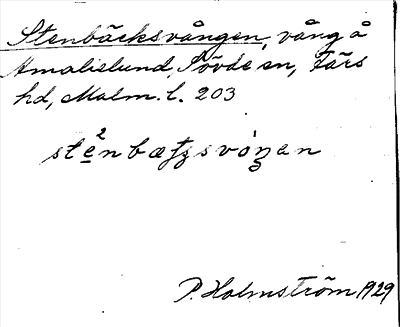 Stenbäcksvången, vång å
Amalielund, Sövde sn, Färs
hd, Malm. l. 203
ste²nbæʦsvòŋ̣an
P. Holmström 1929